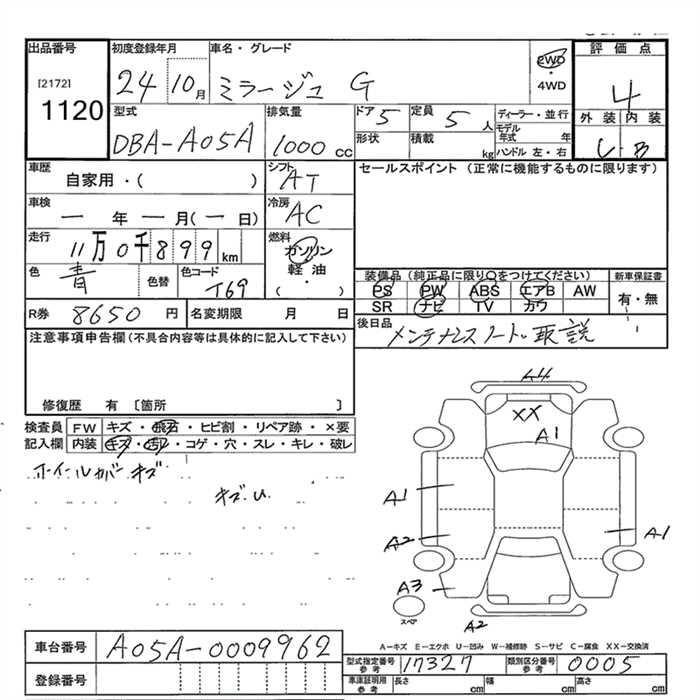 出品番号 初度登録年月 車名・グレード 評価点
[2172] 1120 24 10月 ミラージュ G 2WD ・ 4WD 4
型式 排気量 ドア 5 定員 5人 ディーラー・並行 外装 内装
DBA-A05A 1000 cc 形状 積載 kg モデル年式 年 ハンドル 左・右 B
車歴 シフト セールスポイント (正常に機能するものに限ります)
自家用・( ) AT
車検 冷房
一 年 一 月(一 日) AC
走行 燃料
11万0千899km ガソリン
色 色替 色コード 軽油
青 T69 ( )
装備品(純正品に限り○をつけてください) 新車保証書
PS PW ABS エアB AW 有・無
SR ナビ TV カワ
R券 8650 円 名変期限 月 日
後日品 メンテナンスノート・取説
注意事項申告欄(不具合内容等は具体的に記入して下さい)
修復歴 有 〔箇所 〕
検査員 FW キズ・飛石・ヒビ割・リペア跡・×要
記入欄 内装 キズ・汚レ・コゲ・穴・スレ・キレ・破レ
ホイールカバーキズ
キズ.U
A4
XX
A1
A1
A2
A1
A3
スペア
A2
A-キズ E-エクボ U-凹み W-補修跡 S-サビ C-腐食 XX-交換済
車台番号 A05A-0009962
型式指定番号 参考 17327 類別区分番号 参考 0005
登録番号
車庫証明用 参考 長さ cm 幅 cm 高さ cm